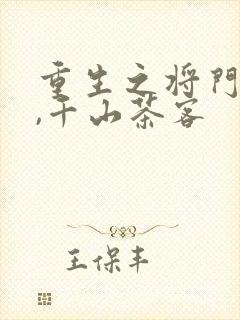 重生之将门
,千山茶客
王保丰